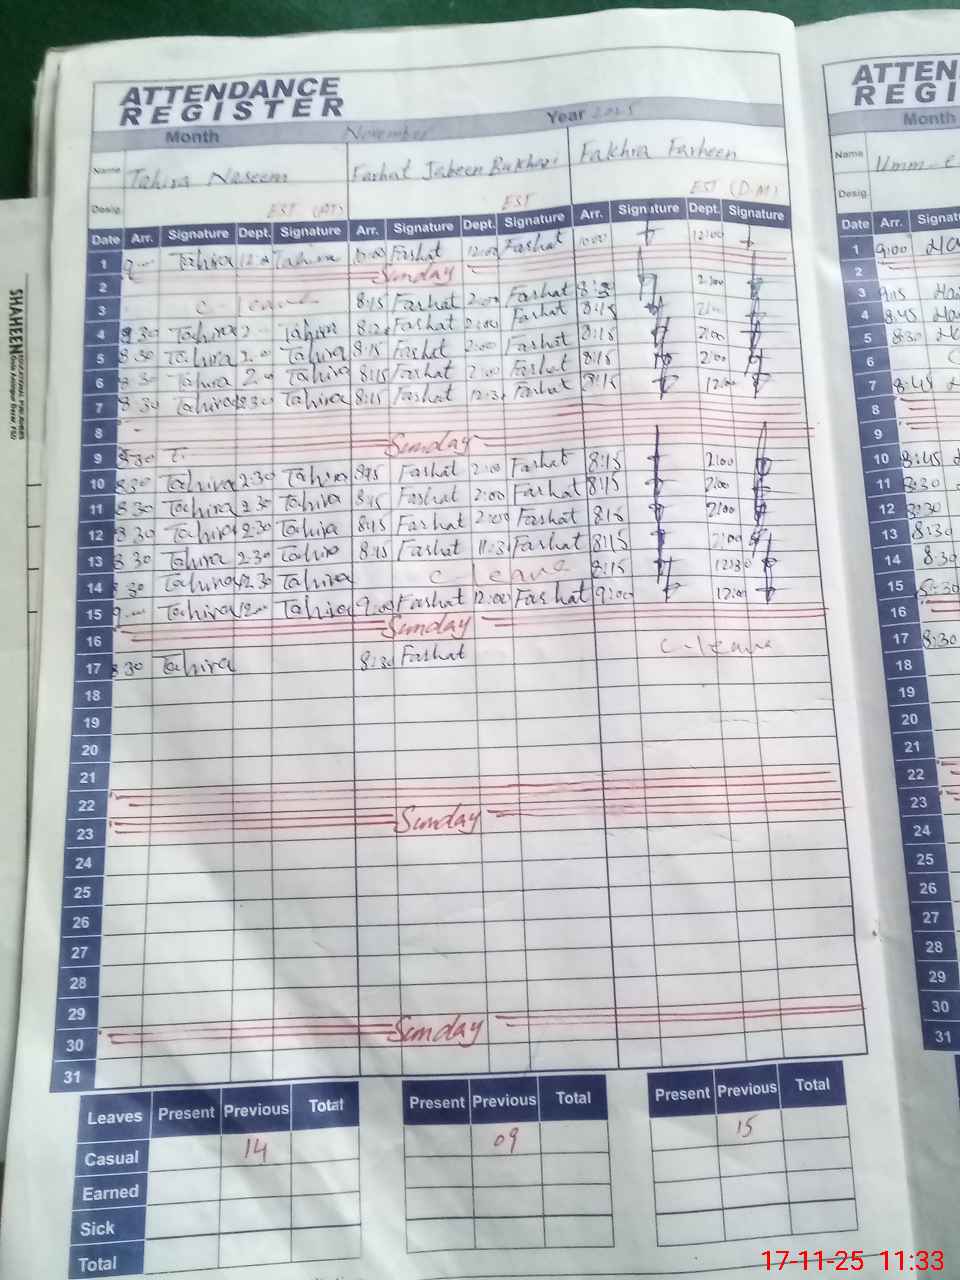 ATTENDANCE
REGISTER
Month November Year 2025
Name Tahira Naseem Farhat Jabeen Bukhari Fakhra Farheen
Desig. EST (AT) EST EST (D.M)
Date Arr. Signature Dept. Signature Arr. Signature Dept. Signature Arr. Signature Dept. Signature
1 Tahira Tahira 10:00 Farhat 12:00 Farhat 10:00 12:00
2 Sunday
3 C-leave 8:15 Farhat 2:00 Farhat 2:00
4 8 30 Tahira Tahira Farhat 2:00 Farhat 8:15 2:00
5 8 30 Tahira Tahira 8:15 Farhat 2:00 Farhat 8:15 2:00
6 8 30 Tahira Tahira 8:15 Farhat 2:00 Farhat 8:15 2:00
7 8 30 Tahira Tahira 8:15 Farhat Farhat 8:15 12:00
8
9 Sunday
10 8 30 Tahira 2:30 Tahira Farhat 2:00 Farhat 8:15 2:00
11 8 30 Tahira 2.30 Tahira 8:15 Farhat 2:00 Farhat 8:15 2:00
12 8 30 Tahira 2.30 Tahira 8:15 Farhat 2:00 Farhat 8:15 2:00
13 8 30 Tahira 2.30 Tahira 8:15 Farhat 11:30 Farhat 8:15 2:00
14 8 30 Tahira 12.30 Tahira C-leave 8:15 12:30
15 Tahira Tahira 9:00 Farhat 12:00 Farhat 9:00 12:00
16 Sunday
17 8 30 Tahira 8:30 Farhat C-leave
18
19
20
21
22
23 Sunday
24
25
26
27
28
29
30 Sunday
31
Leaves Present Previous Total Present Previous Total Present Previous Total
Casual 14 09 15
Earned
Sick
Total
ATTEN
REGI
Month
Name Umm-e
Desig.
Date Arr. Signatu
1 9:00
2
3 9:15
4 8:45
5 8:30
6
7 8:45
8
9
10 8:45
11 8:30
12 8:30
13 8:30
14 8:30
15 8:30
16
17 8:30
18
19
20
21
22
23
24
25
26
27
28
29
30
31
SHAHEEN
17-11-25 11:33